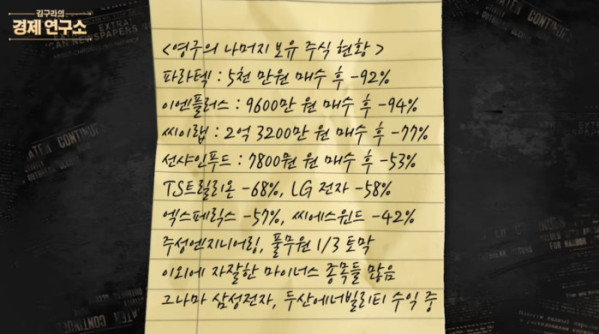 김구라의
경제 연구소
<영구의 나머지 보유 주식 현황>
파라텍 : 5천 만원 매수 후 -92%
이엔플러스 : 9600만 원 매수 후 -94%
씨이랩 : 2억 3200만 원 매수 후 -77%
선샤인푸드 : 7800원 원 매수 후 -53%
TS트릴리온 -68%, LG 전자 -58%
엑스페릭스 -57%, 씨에스윈드 -42%
주성엔지니어링, 풀무원 1/3 토막
이외에 자잘한 마이너스 종목들 많음
그나마 삼성전자, 두산에너빌리티 수익 중